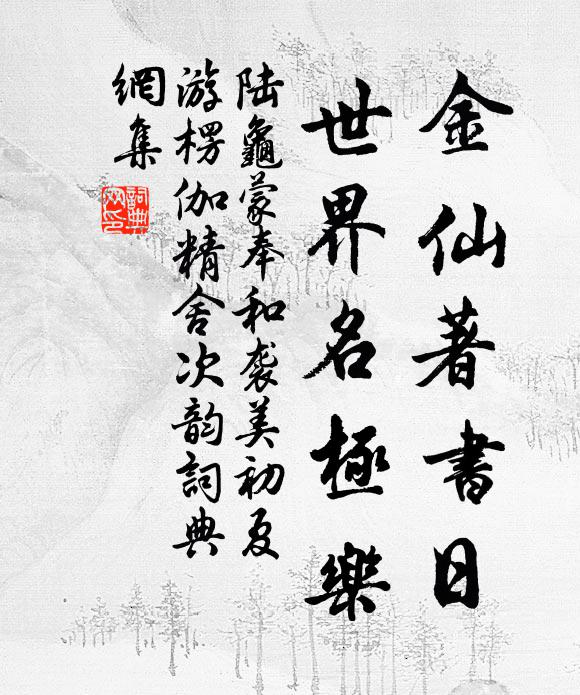 金仙著書日
世界名極樂
陆龜蒙奉和袭美初夏
游楞伽精舍次韵詞典
網集
詞典
网印